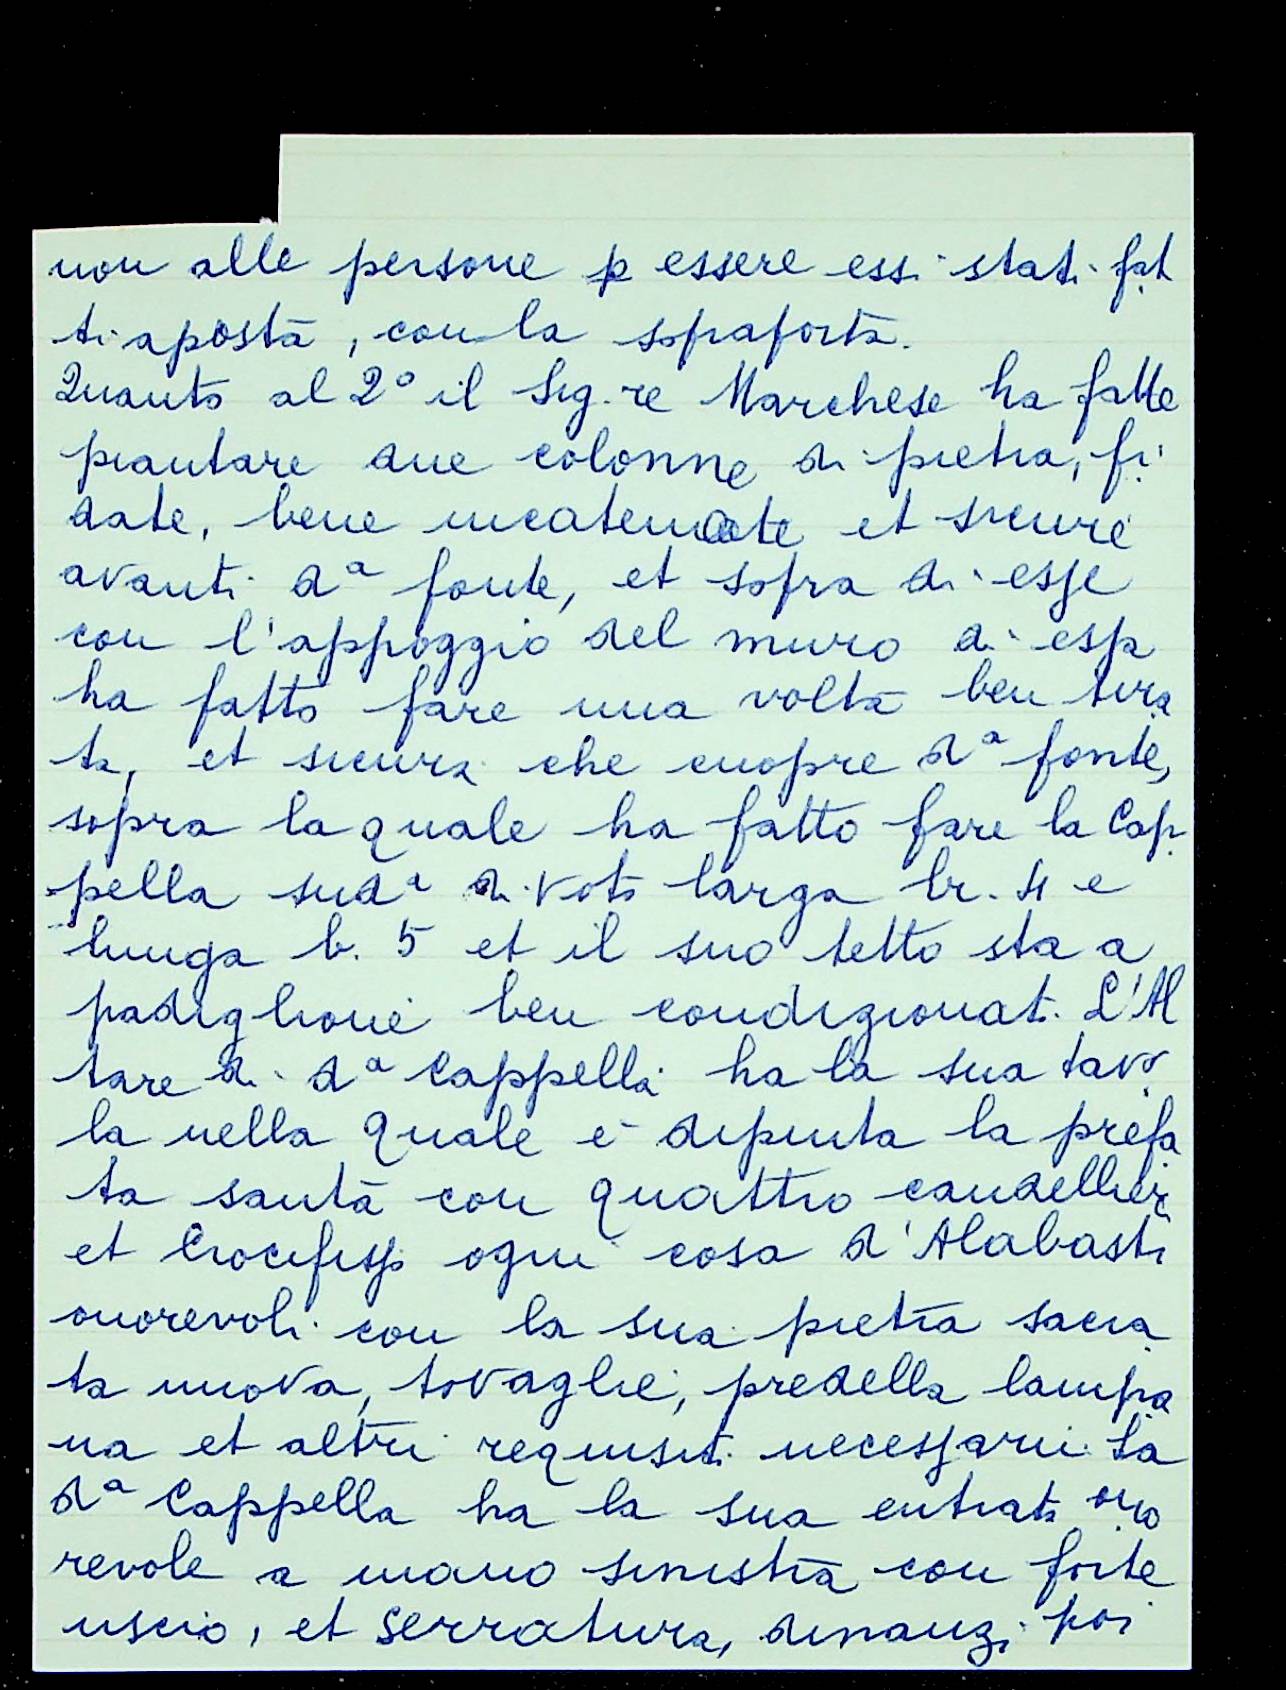 non alle persone p essere essi stati fat
ti aposta, con la sopraposta.
Quanto al 2º il Sig.re Marchese ha fatte
piantare due colonne di pietra, fi
date, bene incatenate et sicure
avanti dª fonte, et sopra di esse
con l'appoggio del muro di esp
ha fatto fare una volta ben tira
ta, et sicura che cuopre dª fonte,
sopra la quale ha fatto fare la Cap-
pella sudª di voto larga br. 4 e
lunga b. 5 et il suo tetto sta a
padiglione ben condizionati. L'Al
tare di dª Cappella ha la sua tavo
la nella quale è dipinta la prefa
ta santa con quattro candellieri
et Crocifisso ogni cosa d'Alabastri
onorevoli con la sua pietra sacra
ta nuova, tovaglie, predella lampa
na et altri requisiti necessarii. La
dª Cappella ha la sua entrata ono
revole a mano sinistra con forte
uscio, et serratura, dinanzi poi